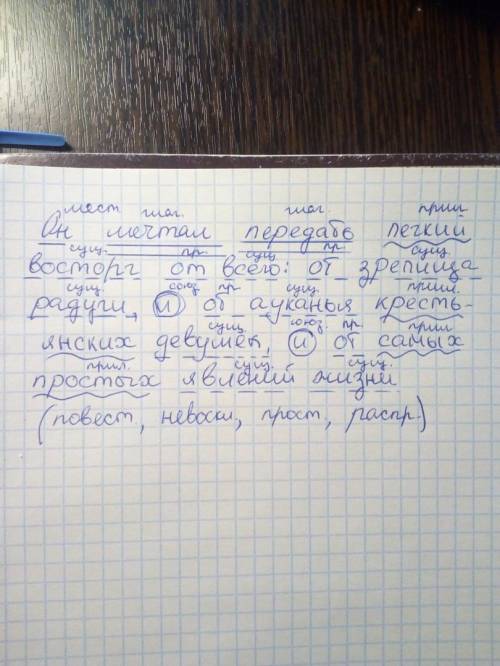 мест. глаг. глаг. прил.
Он мечтал передать легкий
сущ. пр. сущ. пр. сущ.
восторг от всего: от зрелища
сущ. союз пр сущ. прил.
радуги, и от ауканья кресть-
сущ. союз. пр. прил
янских девушек, и от самых
прил. сущ. сущ.
простых явлений жизни
(повест., невоскл., прост., распр.)